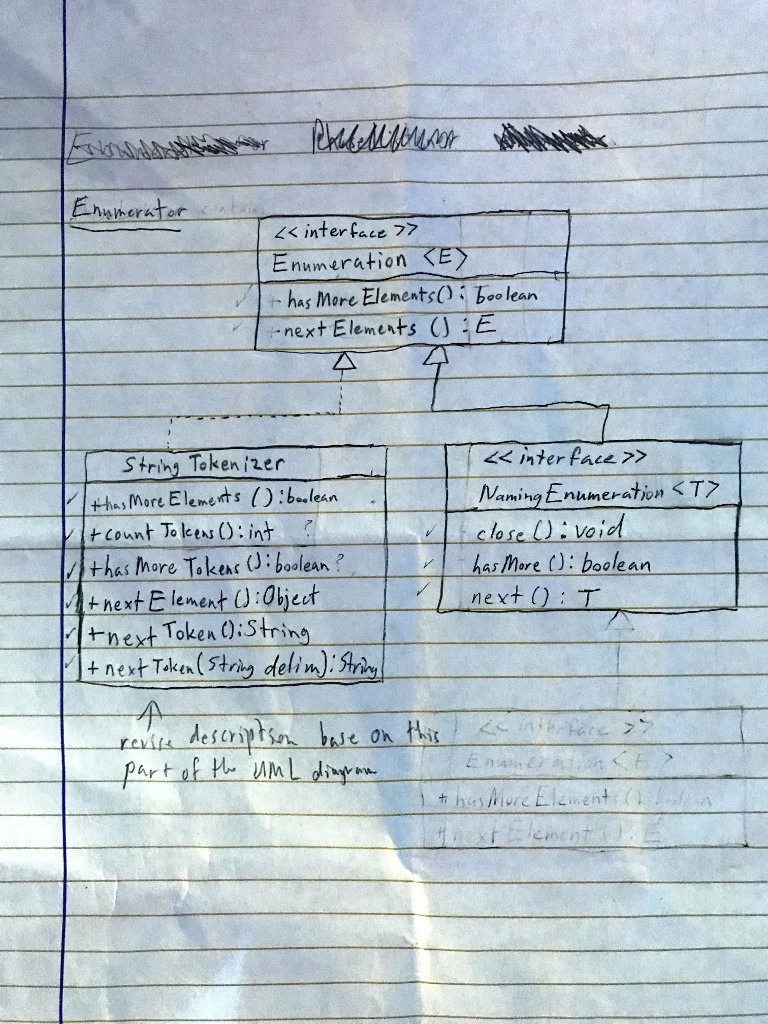 Enumerator contains
<< interface >>
Enumeration <E>
+ hasMoreElements(): boolean
+ nextElements () : E
String Tokenizer
+hasMoreElements (): boolean
+ countTokens(): int ?
+ hasMoreTokens(): boolean ?
+ nextElement (): Object
+ nextToken(): String
+ nextToken(String delim): String
<< interface >>
NamingEnumeration <T>
close(): void
hasMore (): boolean
next () : T
revise description base on this
part of the UML diagram
<< interface >>
Enumeration < >
+ hasMoreElements () boolean
+ nextElement (): E